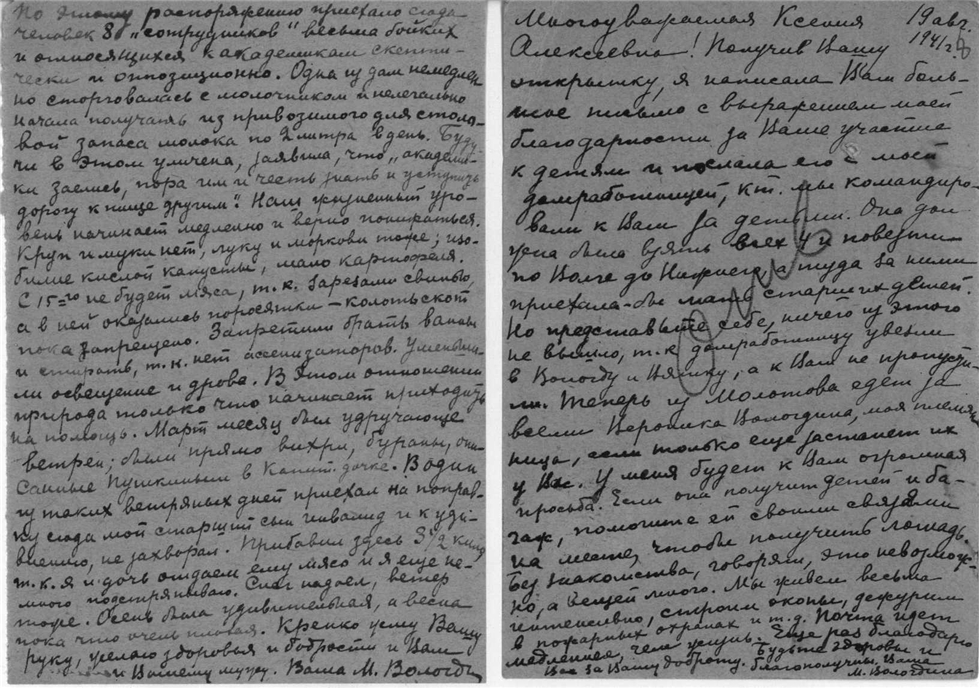 По этому распоряжению приехало сюда
человек 80 "сотрудников" весьма бойких
и относящихся к академикам скепти-
чески и оппозиционно. Одна из дам немедлен
но сторговалась с молочником и нелегально
начала получать из привозимого для столо-
вой запаса молока по 2 литра в день. Буду-
чи в этом уличена, заявила, что "академи-
ки заелись, пора им и честь знать и уступить
дорогу к пище другим". Наш жизненный уро-
вень начинает медленно и верно понижаться.
Круп и муки нет, луку и моркови тоже; изо-
билие кислой капусты, мало картофеля.
С 15-го не будет мяса, т.к. зарезали свинью,
а в ней оказались поросятки – колоть скот
пока запрещено. Запретили брать ванны
и стирать, т.к. нет ассенизаторов. Уменьши-
ли освещение и дрова. В этом отношении
природа только что начинает приходить
на помощь. Март месяц был удручающе
ветрен; были прямо вихри, бураны, опи-
санные Пушкиным в Капит. дочке. В один
из таких ветряных дней приехал на поправ-
ку сюда мой старший сын инвалид и к уди-
влению, не захворал. Прибавил здесь 3½ кило,
т.к. я и дочь отдаем ему мясо и я еще не-
много подстряпываю. Снег надоел, ветер
тоже. Осень была удивительная, а весна
пока что очень плохая. Крепко жму Вашу
руку, желаю здоровья и бодрости и Вам
и Вашему мужу. Ваша М. Вологд
Многоуважаемая Ксения 19 авг.
Алексеевна! Получив Вашу 1941 г.
открытку, я написала Вам боль-
шое письмо с выражением моей
благодарности за Ваше участие
к детям и послала его с моей
домработницей, кт. мы командиро-
вали к Вам за детьми. Она дол
жна была взять всех 4 и повезти
по Волге до Нижнего, а туда за ними
приехала-бы мать старших детей.
Но представьте себе, ничего из этого
не вышло, т.к. домработницу увезли
в Вологду и Вятку, а к Вам не пропусти-
ли. Теперь из Молотова едет за
всеми Верошка Вологдина, моя племян
ница, если только еще застанет их
у Вас. У меня будет к Вам огромная
просьба. Если она получит детей и ба-
гаж, помогите ей своими связями
на месте, чтобы получить лошадь.
Без знакомства, говорят, это невозмож-
но, а вещей много. Мы живем весьма
интенсивно, строим окопы, дежурим
в пожарных охранах и т.д. Почта идет
медленнее, чем Еще раз благодарю
Вас за Вашу доброту. Будьте здоровы и
благополучны. Ваша
М. Вологдина